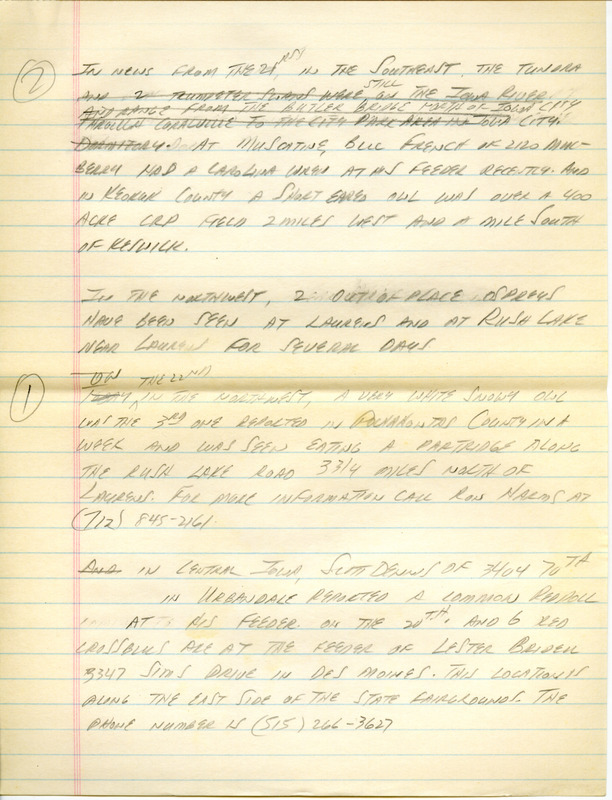 ②
IN NEWS FROM THE 21ST, IN THE SOUTHEAST, THE TUNDRA
AND 2 TRUMPETER SWANS WERE STILL ON THE IOWA RIVER
AND RANGE FROM THE BUTLER BRIDGE NORTH OF IOWA CITY
THROUGH CORALVILLE TO THE CITY PARK AREA IN IOWA CITY.
AT MUSCATINE, BILL FRENCH OF 2120 MUL-
BERRY HAD A CAROLINA WREN AT HIS FEEDER RECENTLY. AND
IN KEOKUK COUNTY A SHORT EARED OWL WAS OVER A 400
ACRE CRP FIELD 2 MILES WEST AND A MILE SOUTH
OF KESWICK.
IN THE NORTHWEST, 2 OUT OF PLACE OSPREYS
HAVE BEEN SEEN AT LAURENS AND AT RUSH LAKE
NEAR LAURENS FOR SEVERAL DAYS
①
ON THE 22ND
IN THE NORTHWEST, A VERY WHITE SNOWY OWL
WAS THE 3RD ONE REPORTED IN POCAHONTAS COUNTY IN A
WEEK AND WAS SEEN EATING A PARTRIDGE ALONG
THE RUSH LAKE ROAD 3 3/4 MILES NORTH OF
LAURENS. FOR MORE INFORMATION CALL RON HARMS AT
(712) 845-2161.
AND IN CENTRAL IOWA, SCOTT DENNIS OF 3404 70TH
IN URBANDALE REPORTED A COMMON REDPOLL
AT HIS FEEDER ON THE 20TH. AND 6 RED
CROSSBILLS ARE AT THE FEEDER OF LESTER
3347 SIMS DRIVE IN DES MOINES. THIS LOCATION IS
ALONG THE EAST SIDE OF THE STATE FAIRGROUNDS. THE
PHONE NUMBER IS (515) 266-3627